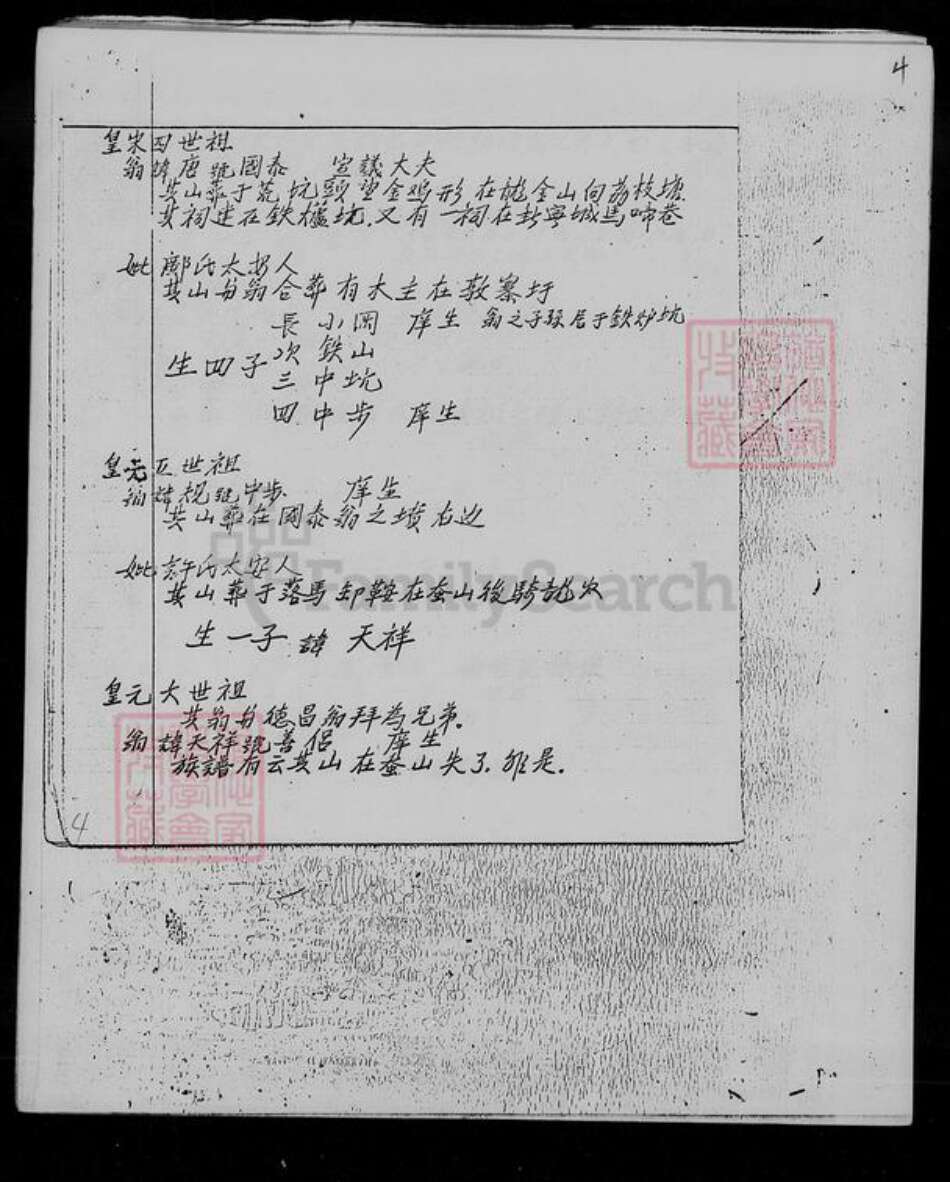 4
皇宋四世祖
翁諱唐號國泰 宣議大夫
其山葬于荒坑頭 金鳮形 在龍金山向荔枝塘
其祠建在鉄爐坑.又有一祠在 寧城馬啼巷
妣 鄺氏太安人
其山与翁合葬 有木主在敦寨圩
長 小岡 庠生 翁之子孫居于鉄炉坑
生四子 次 鉄山
三 中坑
四 中步 庠生
皇元五世祖
翁諱規號中步 庠生
其山葬在國泰翁之墳右边
妣 許氏太安人
其山葬于落馬卸鞍在蚕山後騎龍穴
生一子 諱 天祥
皇元六世祖
其翁与德昌翁拜為兄弟.
翁諱天祥號善侶 庠生
族譜有云其山在蚕山失了. 是.
4
FamilySearch